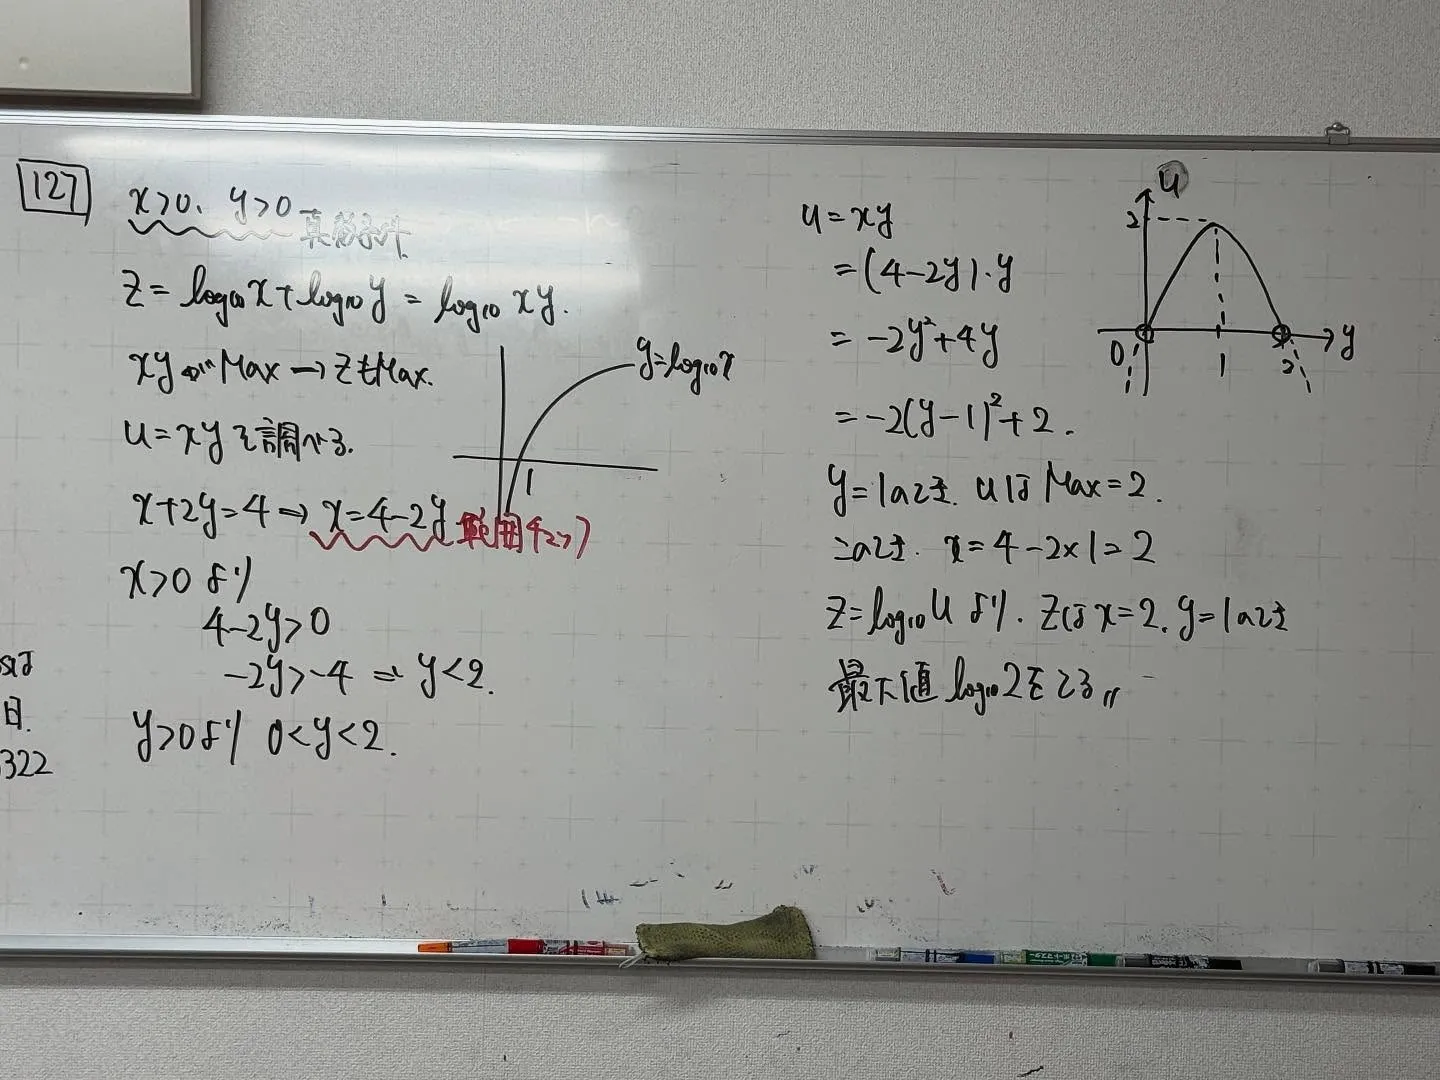 127
x>0、y>0 真数条件
z=log₁₀x+log₁₀y=log₁₀xy.
xyがMax→zもMax.
y=log₁₀x
1
u=xyを調べる.
x+2y=4→x=4-2y 範囲チェック
x>0より
4-2y>0
-2y>-4 → y<2.
y>0より 0<y<2.
日.
322
u=xy
=(4-2y)・y
=-2y²+4y
=-2(y-1)²+2.
y=1のとき. uはMax=2.
このとき. x=4-2×1=2
z=log₁₀uより. zはx=2.y=1のとき
最大値log₁₀2をとる〃
u
2
0
1
2
y